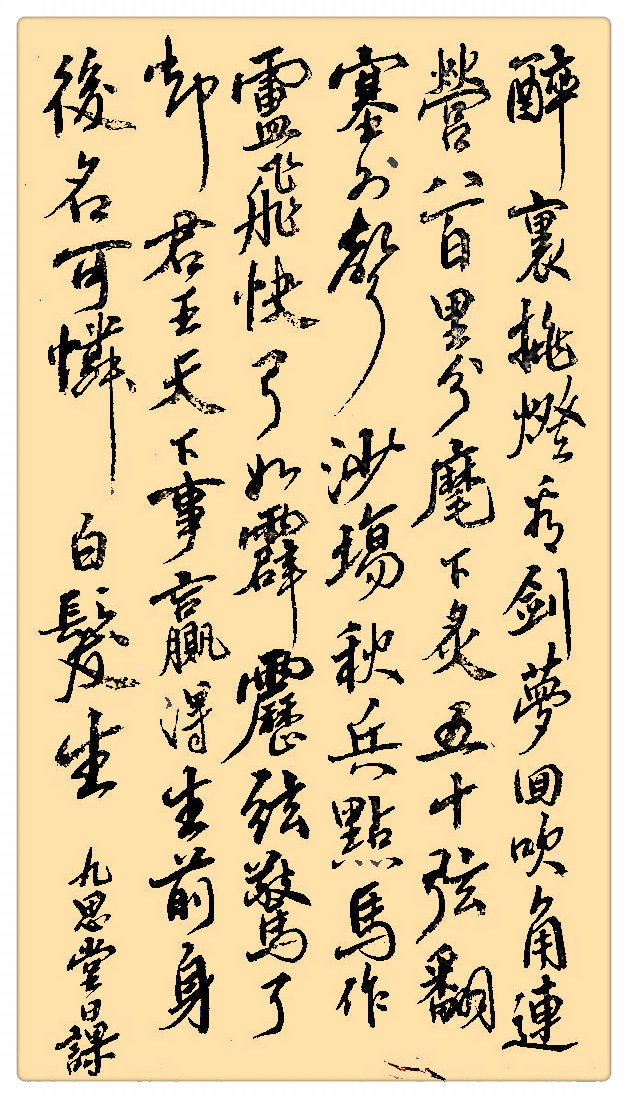 醉裏挑燈看劍夢回吹角連
營八百里分麾下炙五十弦翻
塞外聲沙場秋兵點馬作
盧飛快弓如霹靂弦驚了
却君王天下事贏得生前身
後名可憐白髮生
九思堂日課